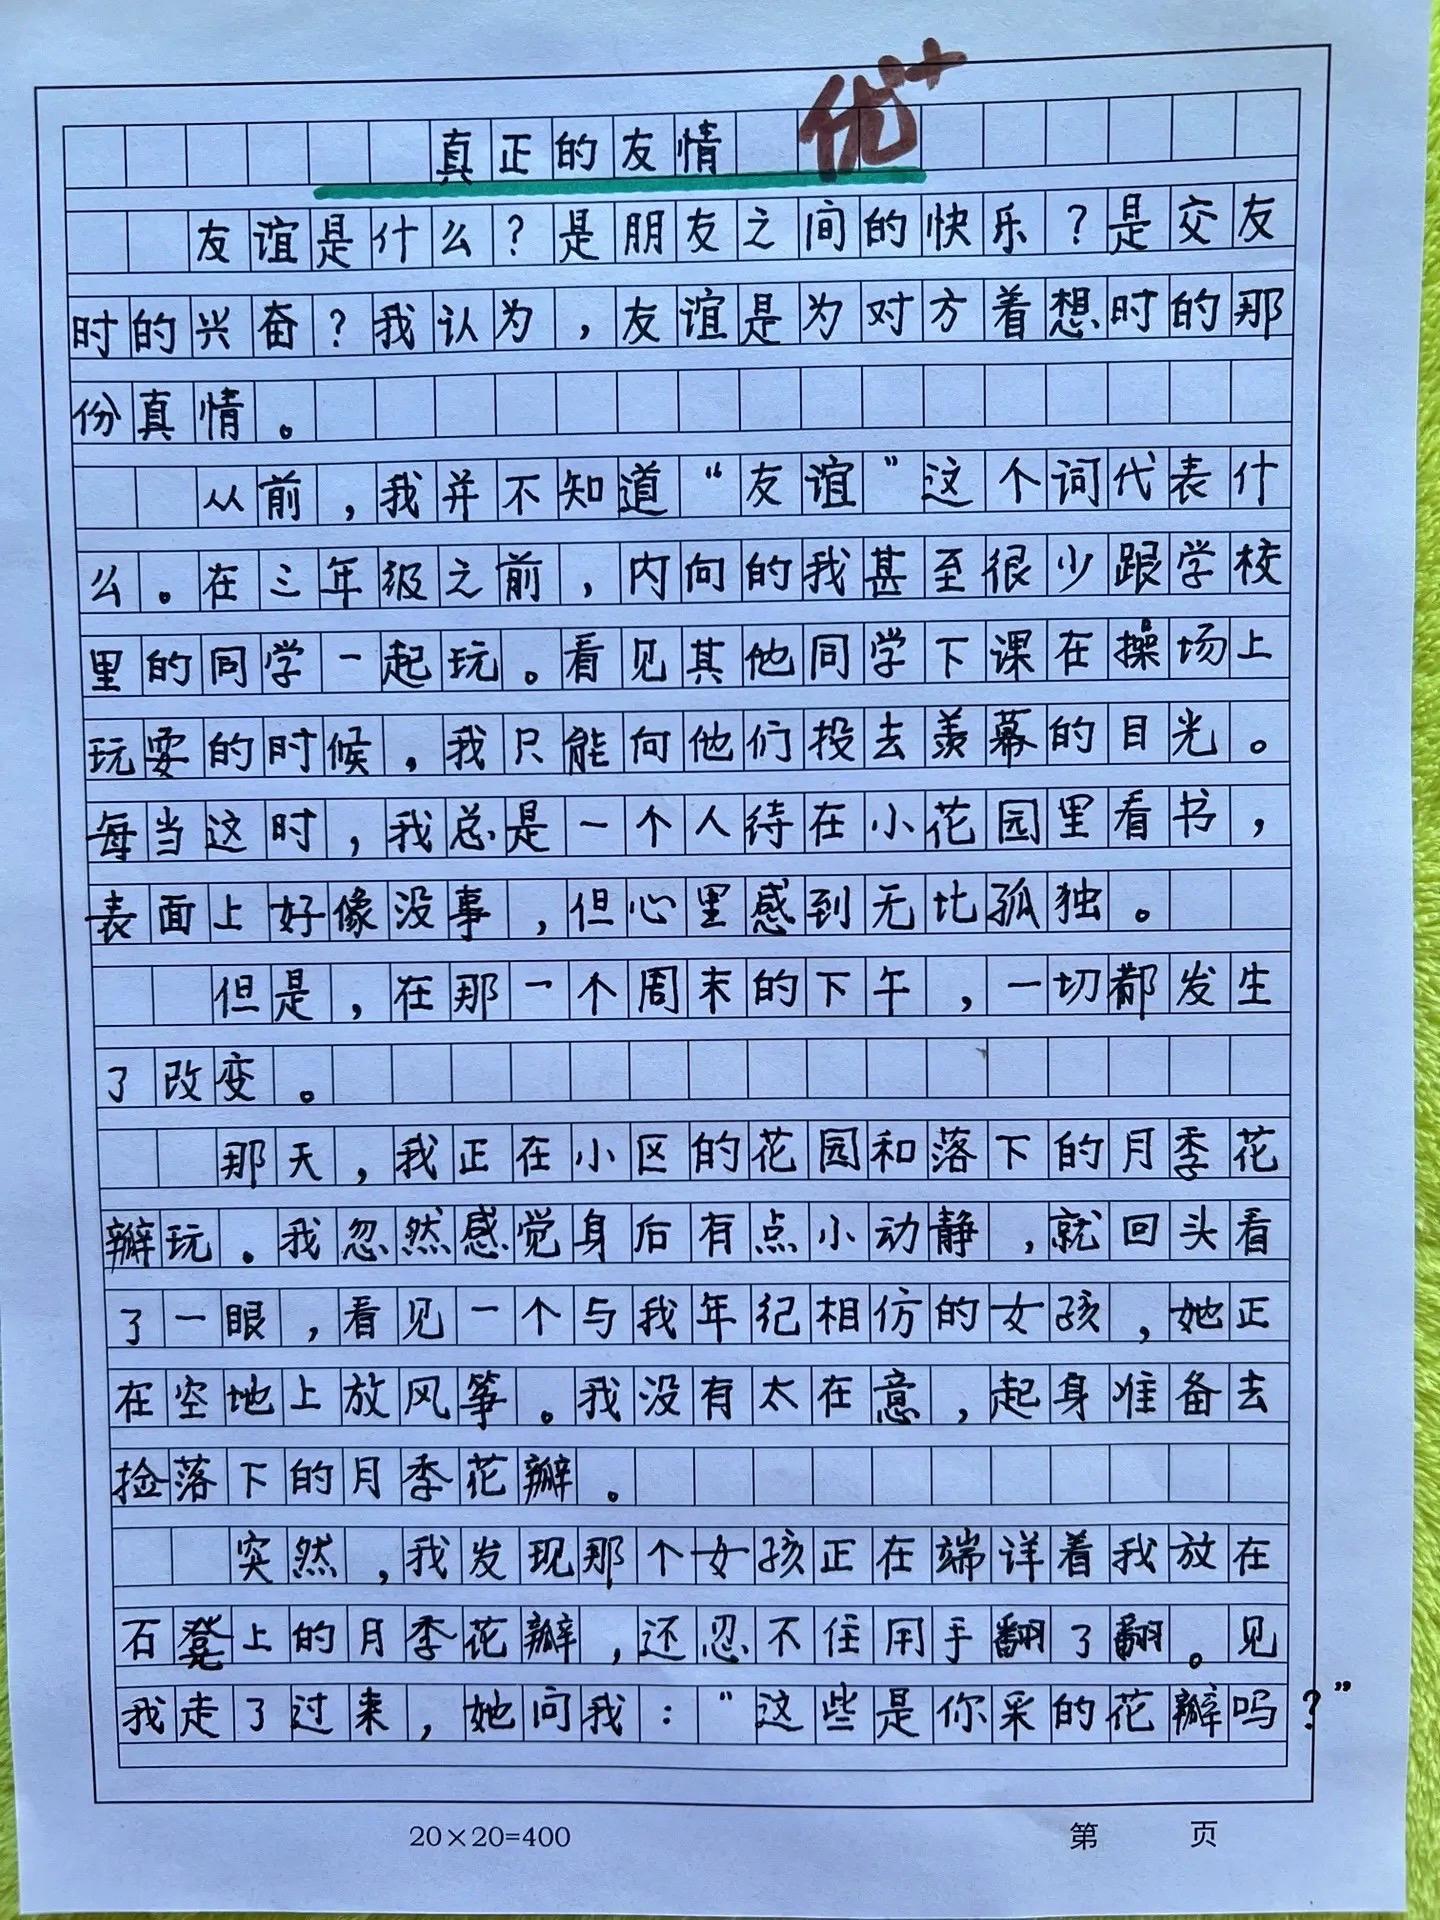 真正的友情 优+
友谊是什么？是朋友之间的快乐？是交友
时的兴奋？我认为，友谊是为对方着想时的那
份真情。
从前，我并不知道“友谊”这个词代表什
么。在三年级之前，内向的我甚至很少跟学校
里的同学一起玩。看见其他同学下课在操场上
玩耍的时候，我只能向他们投去羡慕的目光。
每当这时，我总是一个人待在小花园里看书，
表面上好像没事，但心里感到无比孤独。
但是，在那一个周末的下午，一切都发生
了改变。
那天，我正在小区的花园和落下的月季花
瓣玩。我忽然感觉身后有点小动静，就回头看
了一眼，看见一个与我年纪相仿的女孩，她正
在空地上放风筝。我没有太在意，起身准备去
捡落下的月季花瓣。
突然，我发现那个女孩正在端详着我放在
石凳上的月季花瓣，还忍不住用手翻了翻。见
我走了过来，她问我：“这些是你采的花瓣吗？”
20×20=400
第 页